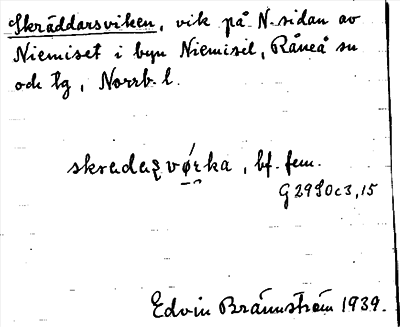 Skräddarsviken, vik på N. sidan av
Niemiset i byn Niemisel, Råneå sn
och tg, Norrb. l.
bf. fem.
G 29
Edvin Brännström 1939.